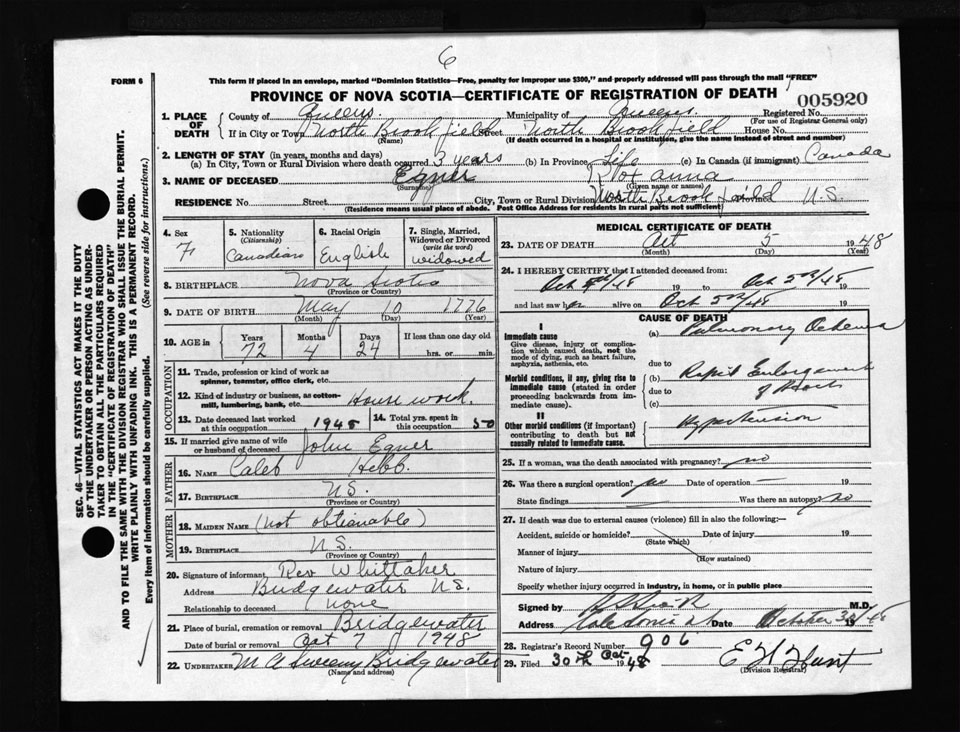 6
FORM 6
This form if placed in an envelope, marked "Dominion Statistics—Free, penalty for improper use $300," and properly addressed will pass through the mail "FREE"
PROVINCE OF NOVA SCOTIA—CERTIFICATE OF REGISTRATION OF DEATH
005920
1. PLACE OF DEATH
County of Queens Municipality of Queens Registered No.
(For use of Registrar General only)
If in City or Town North Brookfield Street North Brookfield House No.
(Name) (If death occurred in a hospital or institution, give the name instead of street and number)
2. LENGTH OF STAY (in years, months and days)
(a) In City, Town or Rural Division where death occurred 3 years (b) In Province Life (c) In Canada (if immigrant) Canada
3. NAME OF DECEASED Egner Roxanna
(Surname) (Given name or names)
RESIDENCE No. Street City, Town or Rural Division North Brookfield Province N.S.
(Residence means usual place of abode. Post Office Address for residents in rural parts not sufficient)
SEC. 46—VITAL STATISTICS ACT MAKES IT THE DUTY
OF THE UNDERTAKER OR PERSON ACTING AS UNDER-
TAKER TO OBTAIN ALL THE PARTICULARS REQUIRED
IN THE "CERTIFICATE OF REGISTRATION OF DEATH"
AND TO FILE THE SAME WITH THE DIVISION REGISTRAR WHO SHALL ISSUE THE BURIAL PERMIT.
WRITE PLAINLY WITH UNFADING INK. THIS IS A PERMANENT RECORD.
Every item of Information should be carefully supplied. (See reverse side for instructions.)
4. Sex F
5. Nationality (Citizenship) Canadian
6. Racial Origin English
7. Single, Married, Widowed or Divorced (write the word) widowed
8. BIRTHPLACE Nova Scotia
(Province or Country)
9. DATE OF BIRTH May 10 1776
(Month) (Day) (Year)
10. AGE in Years 72 Months 4 Days 24 If less than one day old
hrs. or min.
OCCUPATION
11. Trade, profession or kind of work as
spinner, teamster, office clerk, etc.
12. Kind of industry or business, as cotton-
mill, lumbering, bank, etc. House work.
13. Date deceased last worked at this occupation 1945
14. Total yrs. spent in this occupation 50
15. If married give name of wife or husband of deceased John Egner
FATHER
16. NAME Caleb Hebb.
17. BIRTHPLACE N.S.
(Province or Country)
MOTHER
18. MAIDEN NAME (not obtianable)
19. BIRTHPLACE N.S.
(Province or Country)
20. Signature of informant Rev Whittaker
Address Bridgewater N.S.
Relationship to deceased none
21. Place of burial, cremation or removal Bridgewater
Date of burial or removal Oct 7 1948
22. UNDERTAKER M A Sweeny Bridgewater
(Name and address)
MEDICAL CERTIFICATE OF DEATH
23. DATE OF DEATH Oct 5 1948
(Month) (Day) (Year)
24. I HEREBY CERTIFY that I attended deceased from:
Oct 19 to Oct 5 /48 19
and last saw her alive on Oct 5 /48 19
CAUSE OF DEATH
I
Immediate cause
Give disease, injury or complication which caused death, not the mode of dying, such as heart failure, asphyxia, asthenia, etc.
(a) Pulmonary Oedema
due to
Morbid conditions, if any, giving rise to immediate cause (stated in order proceeding backwards from immediate cause).
(b) Rapid Enlargement
due to of Heart
(c)
II
Other morbid conditions (if important) contributing to death but not causally related to immediate cause.
Hypertension
25. If a woman, was the death associated with pregnancy? no
26. Was there a surgical operation? no Date of operation — 19
State findings Was there an autopsy? no
27. If death was due to external causes (violence) fill in also the following:—
Accident, suicide or homicide? Date of injury 19
(State which)
Manner of injury
(How sustained)
Nature of injury
Specify whether injury occurred in industry, in home, or in public place
Signed by M.D.
Address Caledonia October 30 1948
28. Registrar's Record Number 906
29. Filed 30th Oct 1948 E H Hunt
(Division Registrar)